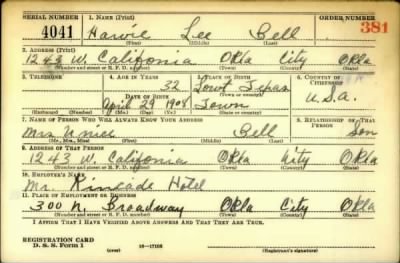 SERIAL NUMBER 1. NAME (Print) ORDER NUMBER
4041 Harvie Lee Bell 381
(First) (Middle) (Last)
2. ADDRESS (Print)
1243 W. California Okla City Okla
(Number and street or R. F. D. number) (Town) (County) (State)
3. TELEPHONE 4. AGE IN YEARS 5. PLACE OF BIRTH 6. COUNTRY OF CITIZENSHIP
32 Texas
DATE OF BIRTH (Town or county)
April 29 1908 Town U.S.A.
(Exchange) (Number) (Mo.) (Day) (Yr.) (State or country)
7. NAME OF PERSON WHO WILL ALWAYS KNOW YOUR ADDRESS 8. RELATIONSHIP OF THAT PERSON
Mrs Bell Son
(Mr., Mrs., Miss) (First) (Middle) (Last)
9. ADDRESS OF THAT PERSON
1243 W. California Okla City Okla
(Number and street or R. F. D. number) (Town) (County) (State)
10. EMPLOYER'S NAME
Mr. Kincade Hotel
11. PLACE OF EMPLOYMENT OR BUSINESS
300 N. Broadway Okla City Okla
(Number and street or R. F. D. number) (Town) (County) (State)
I AFFIRM THAT I HAVE VERIFIED ABOVE ANSWERS AND THAT THEY ARE TRUE.
REGISTRATION CARD
D. S. S. Form 1 (over) 16—17105 (Registrant's signature)